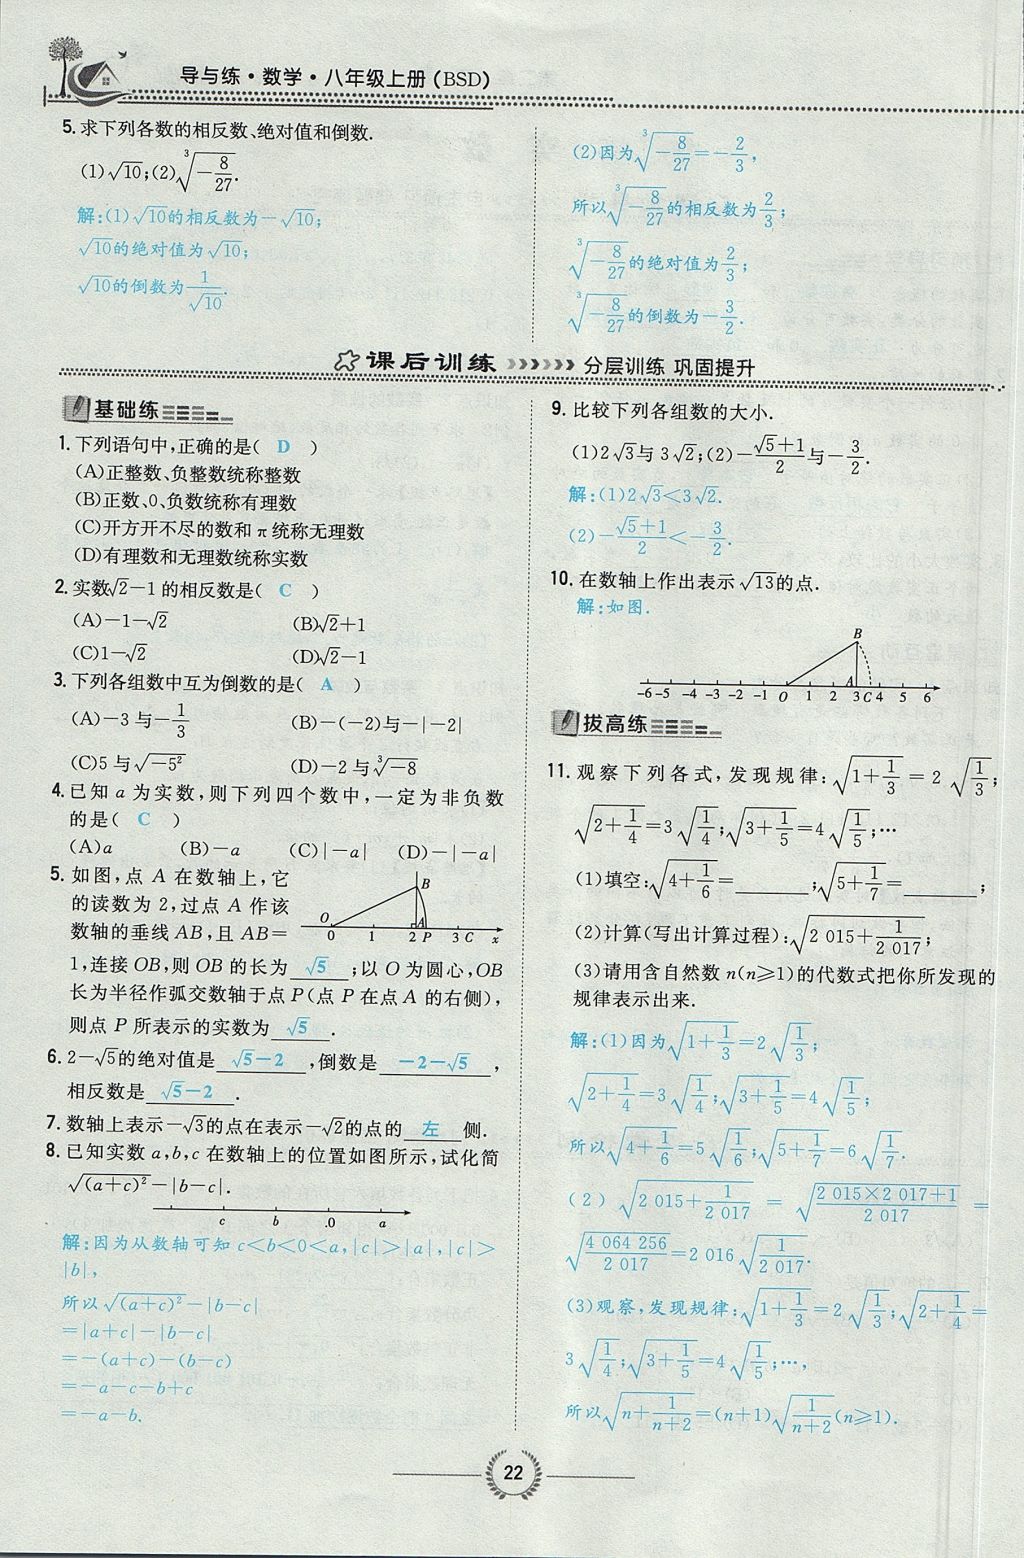 导与练·数学·八年级上册(BSD)
5. 求下列各数的相反数、绝对值和倒数.
(1)√10;(2)∛(-8/27).
解:(1)√10的相反数为-√10;
√10的绝对值为√10;
√10的倒数为1/√10.
(2)因为∛(-8/27)=-2/3,
所以∛(-8/27)的相反数为2/3;
∛(-8/27)的绝对值为2/3;
∛(-8/27)的倒数为-3/2.
课后训练 分层训练 巩固提升
基础练
1. 下列语句中,正确的是( D )
(A)正整数、负整数统称整数
(B)正数、0、负数统称有理数
(C)开方开不尽的数和π统称无理数
(D)有理数和无理数统称实数
2. 实数√2-1的相反数是( C )
(A)-1-√2 (B)√2+1
(C)1-√2 (D)√2-1
3. 下列各组数中互为倒数的是( A )
(A)-3与-1/3 (B)-(-2)与-|-2|
(C)5与√(-5²) (D)-2与∛-8
4. 已知a为实数,则下列四个数中,一定为非负数
的是( C )
(A)a (B)-a (C)|-a| (D)-|-a|
5. 如图,点A在数轴上,它
的读数为2,过点A作该
数轴的垂线AB,且AB=
O B A 0 1 2 P 3 C x
1,连接OB,则OB的长为 √5 ;以O为圆心,OB
长为半径作弧交数轴于点P(点P在点A的右侧),
则点P所表示的实数为 √5 .
6. 2-√5的绝对值是 √5-2 ,倒数是 -2-√5 ,
相反数是 √5-2 .
7. 数轴上表示-√3的点在表示-√2的点的 左 侧.
8. 已知实数a,b,c在数轴上的位置如图所示,试化简
√(a+c)²-|b-c|.
c b 0 a
解:因为从数轴可知c<b<0<a,|c|>|a|,|c|>
|b|,
所以√(a+c)²-|b-c|
=|a+c|-|b-c|
=-(a+c)-(b-c)
=-a-c-b+c
=-a-b.
9. 比较下列各组数的大小.
(1)2√3与3√2;(2)-(√5+1)/2与-3/2.
解:(1)2√3<3√2.
(2)-(√5+1)/2<-3/2.
10. 在数轴上作出表示√13的点.
解:如图.
B
-6 -5 -4 -3 -2 -1 0 1 2 A 3 C 4 5 6
拔高练
11. 观察下列各式,发现规律:√(1+1/3)=2√(1/3);
√(2+1/4)=3√(1/4);√(3+1/5)=4√(1/5);…
(1)填空:√(4+1/6)=________;√(5+1/7)=________;
(2)计算(写出计算过程):√(2 015+1/2 017);
(3)请用含自然数n(n≥1)的代数式把你所发现的
规律表示出来.
解:(1)因为√(1+1/3)=2√(1/3);
√(2+1/4)=3√(1/4);√(3+1/5)=4√(1/5);
所以√(4+1/6)=5√(1/6);√(5+1/7)=6√(1/7).
(2)√(2 015+1/2 017)=√((2 015×2 017+1)/2 017)=
√(4 064 256/2 017)=2 016√(1/2 017).
(3)观察,发现规律:√(1+1/3)=2√(1/3);√(2+1/4)=
3√(1/4);√(3+1/5)=4√(1/5);…,
所以√(n+1/(n+2))=(n+1)√(1/(n+2))(n≥1).
22